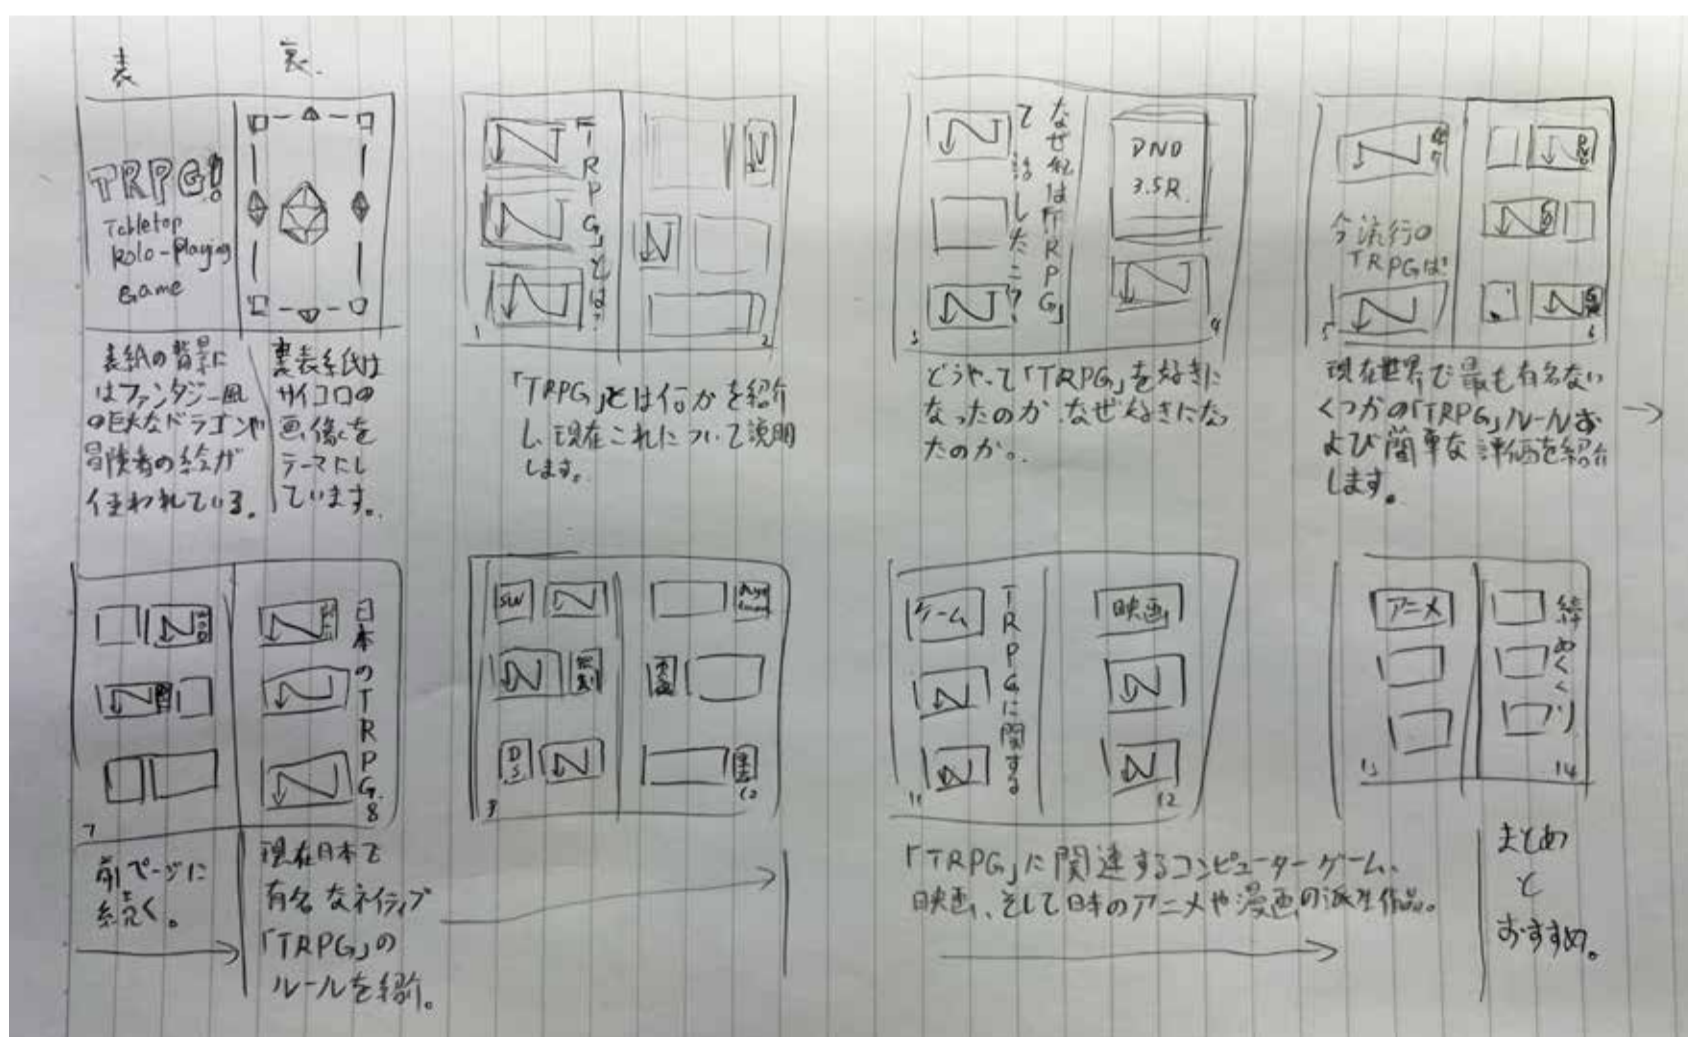 表
裏.
TRPG!
Tabletop
Rolo-Playing
Game
表紙の背景に
はファンタジー風
の巨大なドラゴンや
冒険者の絵が
使われている。
裏表紙は
サイコロの
画像を
テーマにし
ています。
「TRPG」とは?
1
2
「TRPG」とは何かを紹介
し、現在これについて説明
します。
なぜ私は「TRPG」
3
DND
3.5R
4
どうやって「TRPG」を好きに
なったのか、なぜ好きになっ
たのか。
今流行の
TRPGは?
5
6
現在世界で最も有名ない
くつかの「TRPG」ルールお
よび簡単な評価を紹介
します。
7
前ページに
続く。
日本のTRPG.
8
現在日本で
有名なネイティブ
「TRPG」の
ルールを紹介。
SW
9
10
ゲーム
TRPGに関する
11
映画
12
「TRPG」に関連するコンピューターゲーム、
映画、そして日本のアニメや漫画の派生作品。
アニメ
13
締めくくり
14
まとめ
と
おすすめ。